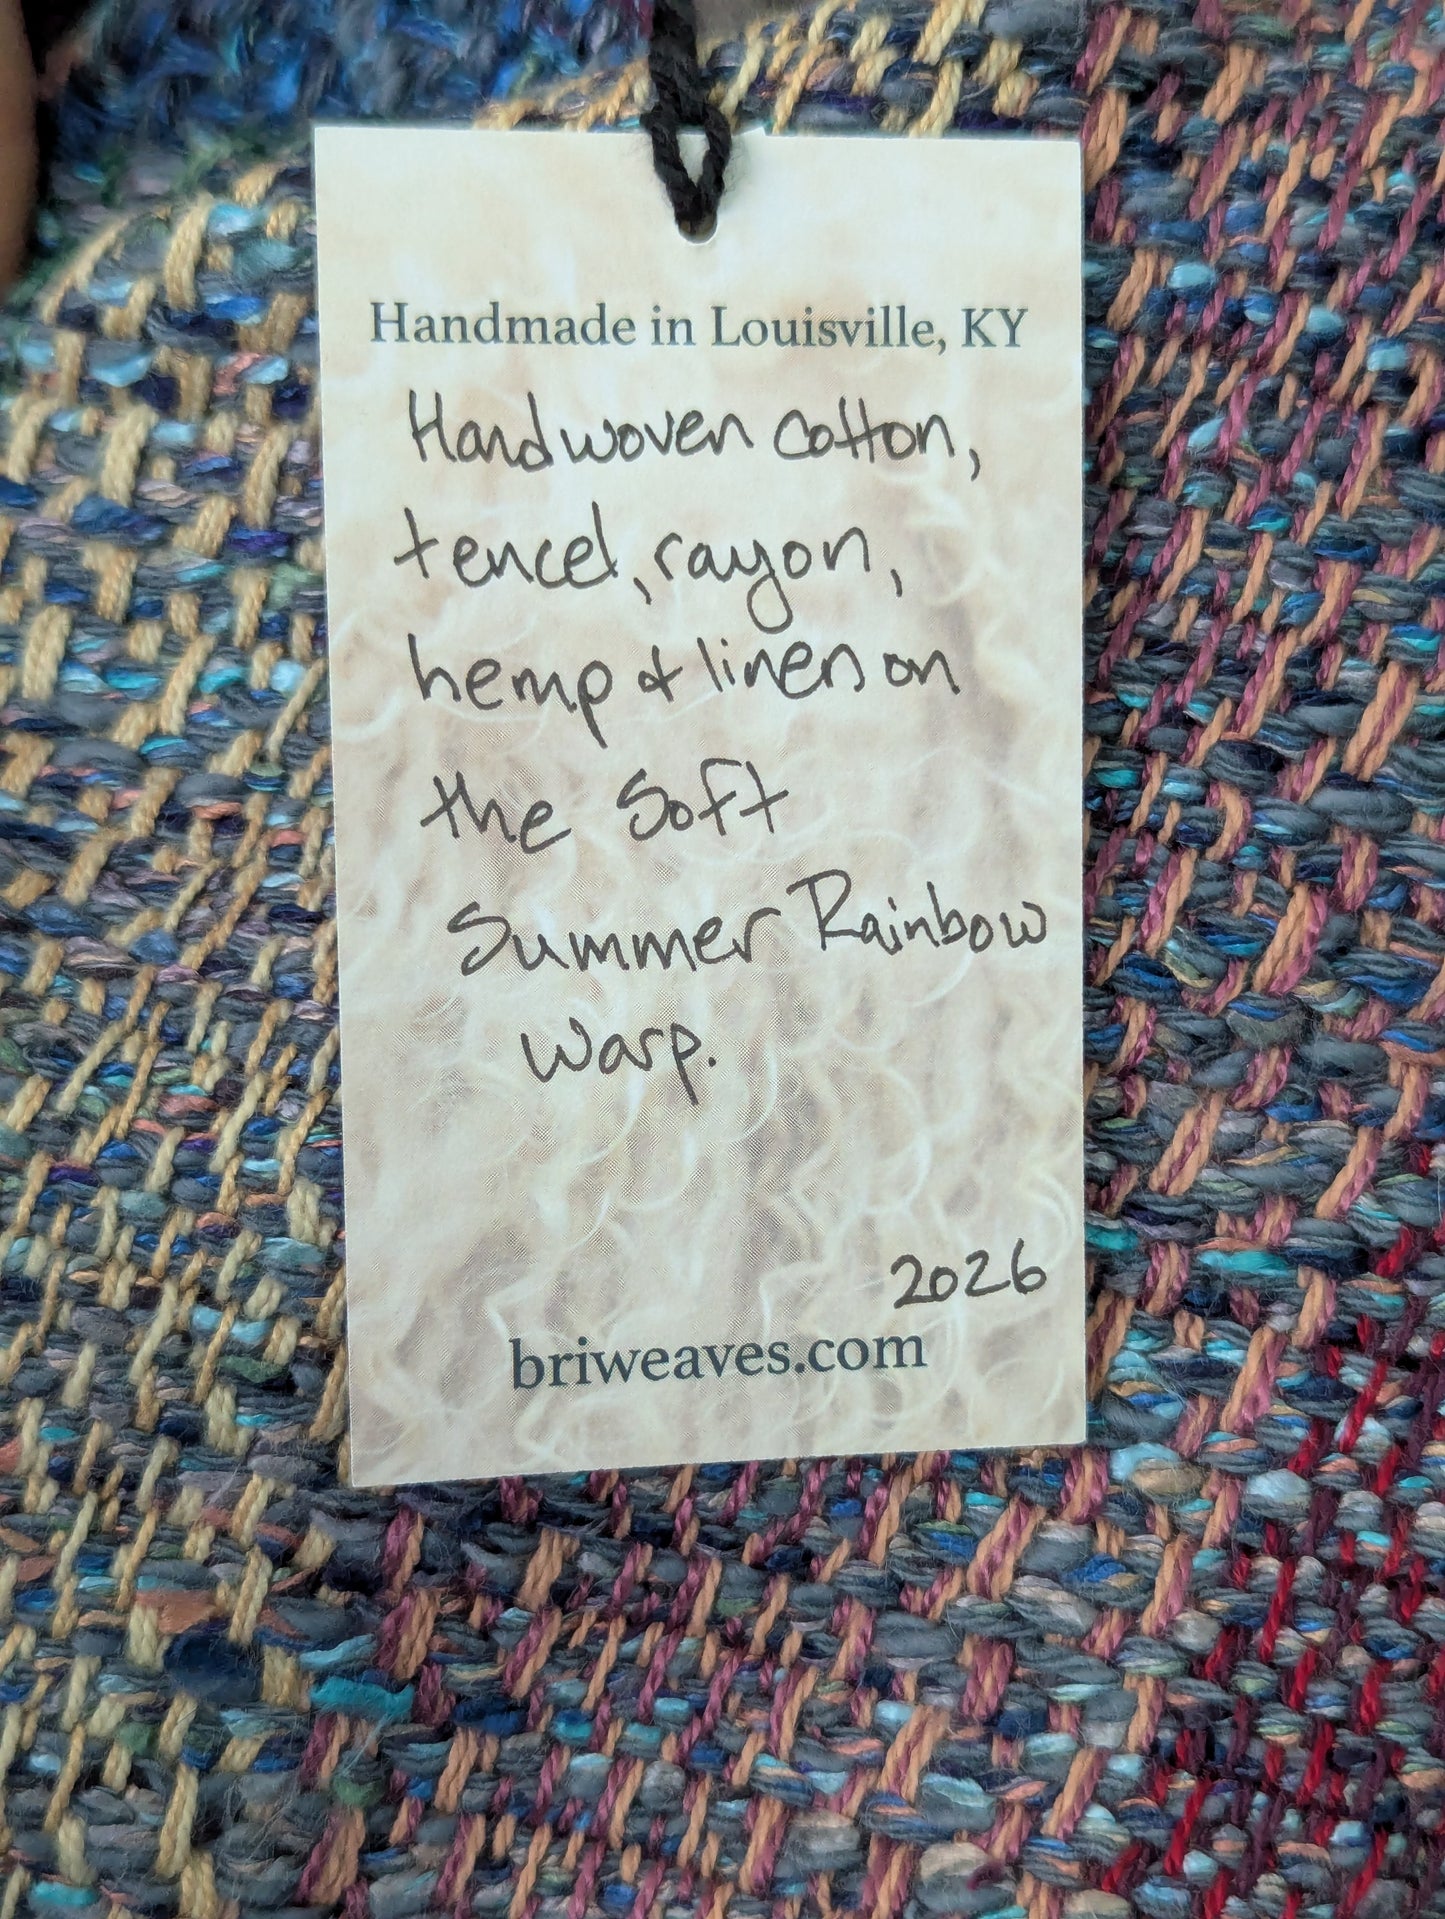 Handmade in Louisville, KY
Handwoven cotton,
tencel, rayon,
hemp & linen on
the Soft
Summer Rainbow
warp.
2026
briweaves.com